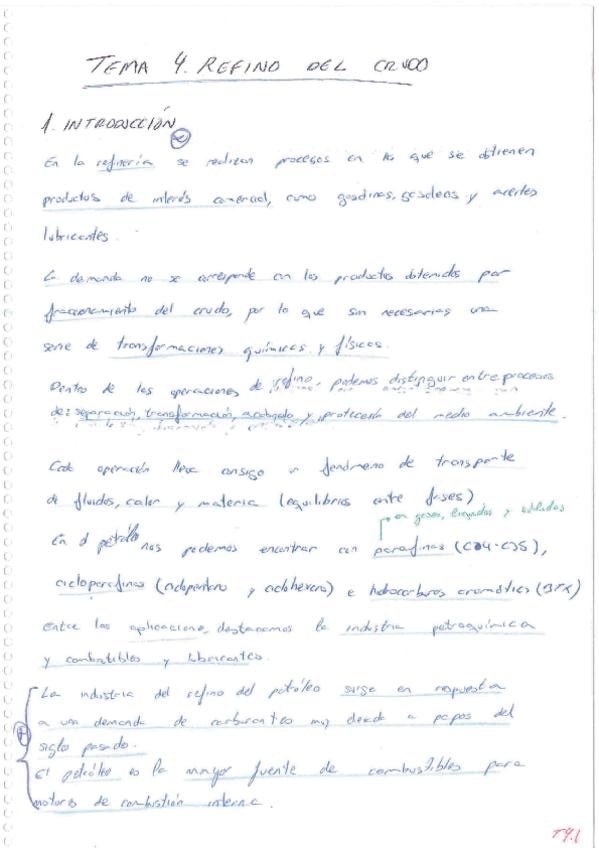 TEMA 4. REFINO DEL CRUDO
1. INTRODUCCIÓN
En la refinería se realizan procesos en los que se obtienen
productos de interés comercial, como gasolinas, gasoleos y aceites
lubricantes.
La demanda no se corresponde con los productos obtenidos por
fraccionamiento del crudo, por lo que son necesarias una
serie de transformaciones químicas y físicas.
Dentro de las operaciones de refino, podemos distinguir entre procesos
de: separación, transformación, acabado y protección del medio ambiente.
Cada operación lleva consigo un fenómeno de transporte
de fluidos, calor y materia (equilibrios entre fases)
en gases, licuados y sólidos
En el petróleo nos podemos encontrar con parafinas (C04-C35),
cicloparafinas (ciclopentano y ciclohexano) e hidrocarburos aromáticos (BTX)
Entre las aplicaciones, destacamos la industria petroquímica
y combustibles y lubricantes.
La industria del refino del petróleo surge en respuesta
a una demanda de carburantes muy desde a papos del
siglo pasado.
El petróleo es la mayor fuente de combustibles para
motores de combustión interna.
T4.1